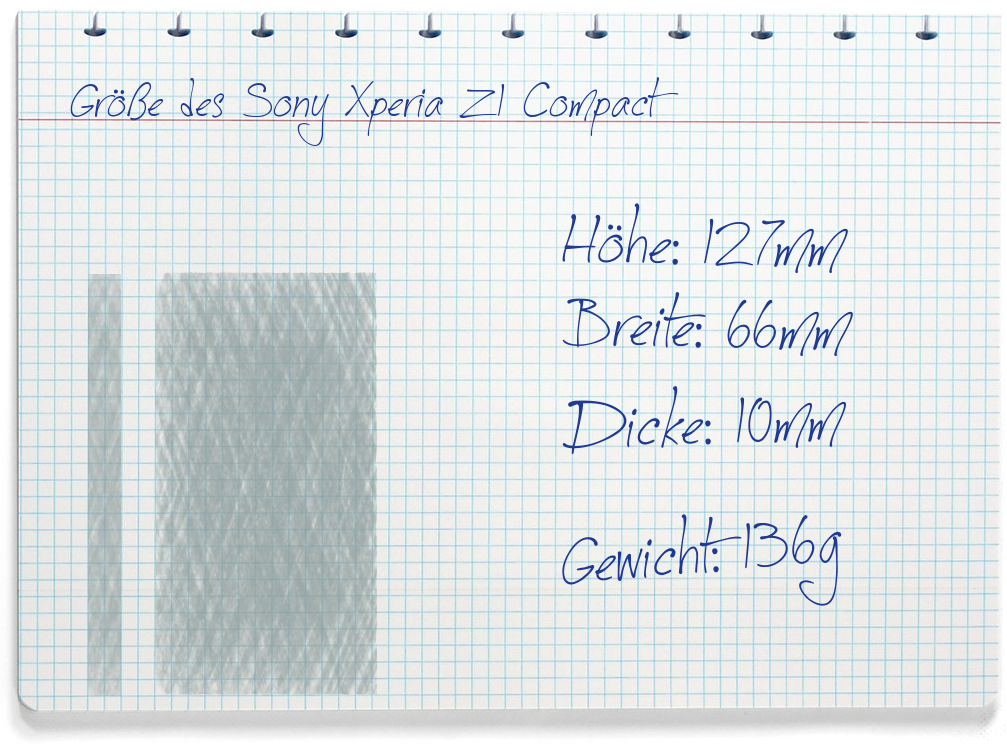 Größe des Sony Xperia Z1 Compact
Höhe: 127mm
Breite: 66mm
Dicke: 10mm
Gewicht: 136g